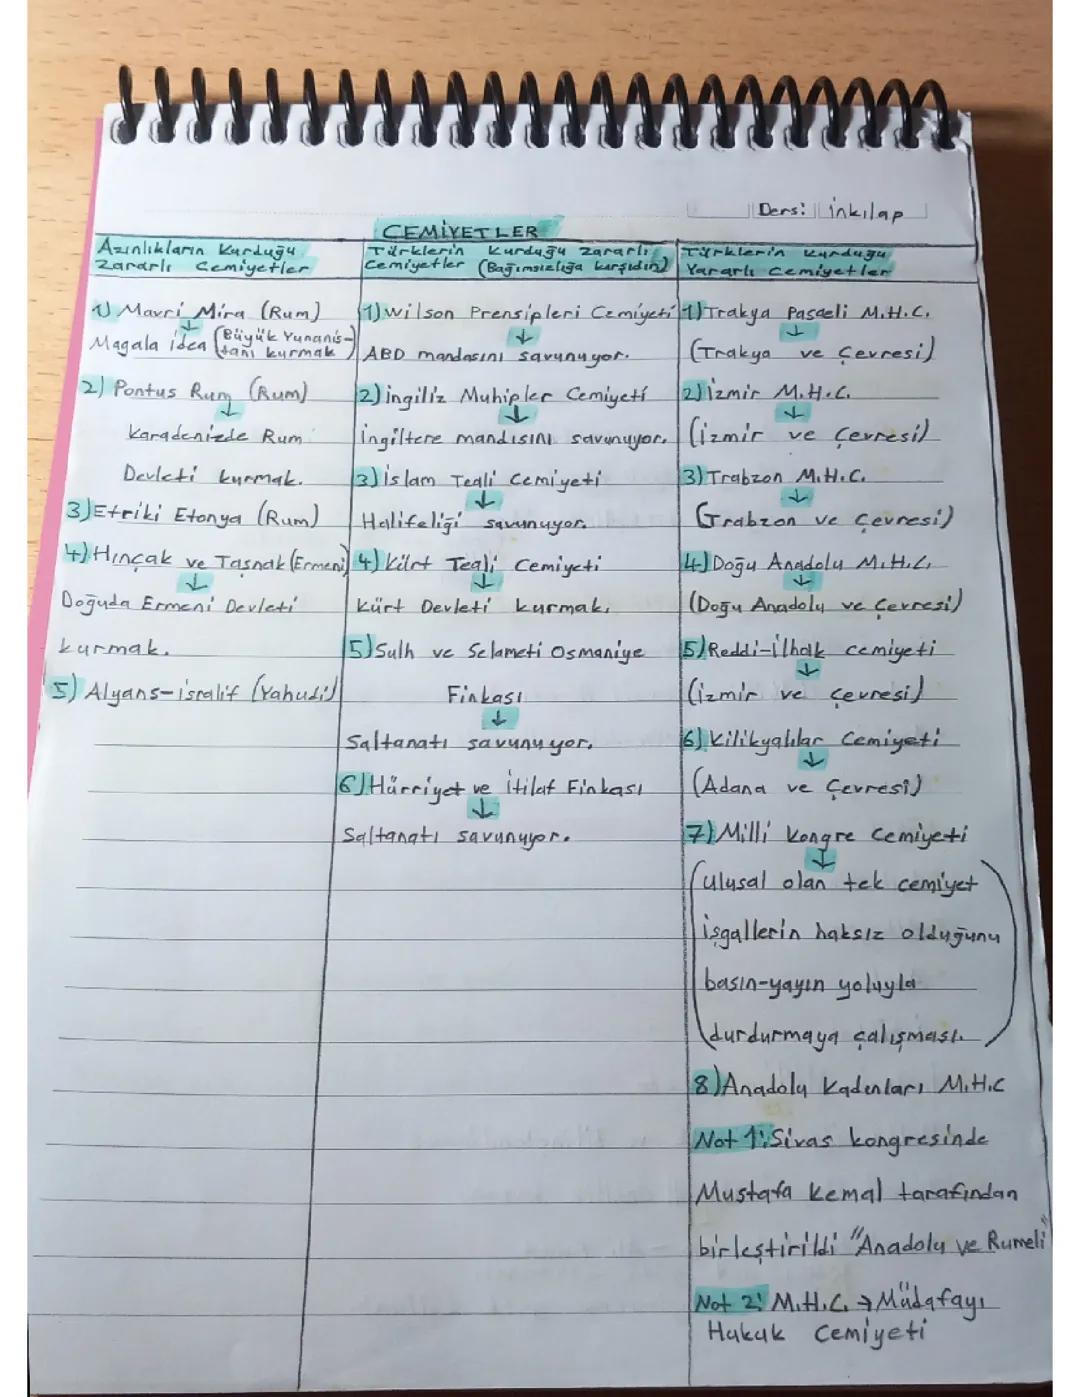 Ders: inkılap
CEMİYETLER
Azınlıkların Kurduğu
Zararlı Cemiyetler
1) Mavri Mira (Rum)
↓
Magala idea (Büyük Yunanis-
tanı kurmak)
2) Pontus Rum (Rum)
↓
Karadenizde Rum
Devleti kurmak.
3) Etriki Etonya (Rum)
4) Hınçak ve Taşnak (Ermeni)
↓
Doğuda Ermeni Devleti
kurmak.
5) Alyans-isralif (Yahudi)
Türklerin Kurduğu zararlı
Cemiyetler (Bağımsızlığa karşıdın)
1) Wilson Prensipleri Cemiyeti
↓
ABD mandasını savunuyor.
2) ingiliz Muhipler Cemiyeti
↓
İngiltere mandısını savunuyor.
3) islam Teali Cemiyeti
↓
Halifeliği savunuyor.
4) Kürt Teali Cemiyeti
↓
Kürt Devleti kurmak.
5) Sulh ve Selameti Osmaniye
Fınkası
↓
Saltanatı savunuyor.
6) Hürriyet ve itilaf Fınkası
↓
Saltanatı savunuyor.
Türklerin kurduğu
Yararlı cemiyetler
1) Trakya Paşaeli M.H.C.
↓
(Trakya ve Çevresi)
2) İzmir M.H.C.
↓
(izmir ve Çevresi)
3) Trabzon M.H.C.
↓
(Trabzon ve Çevresi)
4) Doğu Anadolu M.H.C.
↓
(Doğu Anadolu ve Çevresi)
5) Reddi-ilhak cemiyeti
↓
(izmir ve çevresi)
6) Kilikyalılar Cemiyeti
↓
(Adana ve Çevresi)
7) Milli Kongre Cemiyeti
↓
(ulusal olan tek cemiyet
işgallerin haksız olduğunu
basın-yayın yoluyla
durdurmaya çalışması.)
8) Anadolu Kadınları M.H.C
Not 1: Sivas kongresinde
Mustafa Kemal tarafından
birleştirildi "Anadolu ve Rumeli"
Not 2: M.H.C. → Müdafayı
Hukuk Cemiyeti